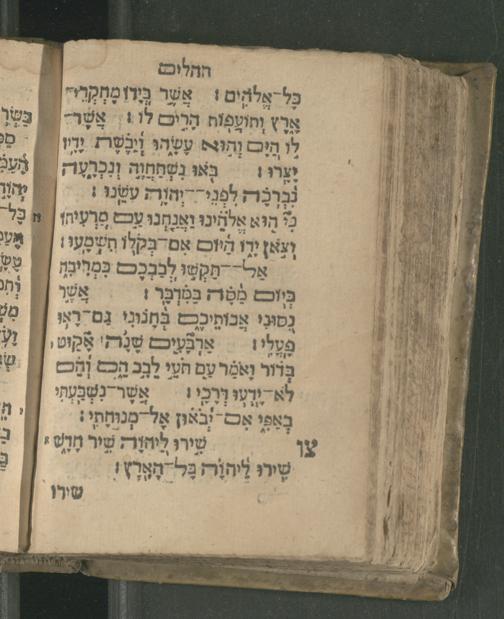 תהלים
כׇּל־אֱלֹהִים׃ אֲשֶׁר בְּיָדוֹ מֶחְקְרֵי־
אָרֶץ וְתוֹעֲפוֹת הָרִים לוֹ׃ אֲשֶׁר־
לוֹ הַיָּם וְהוּא עָשָׂהוּ וְיַבֶּשֶׁת יָדָיו
יָצָרוּ׃ בֹּאוּ נִשְׁתַּחֲוֶה וְנִכְרָעָה
נִבְרְכָה לִפְנֵי־יְהוָה עֹשֵׂנוּ׃
כִּי הוּא אֱלֹהֵינוּ וַאֲנַחְנוּ עַם מַרְעִיתוֹ
וְצֹאן יָדוֹ הַיּוֹם אִם־בְּקֹלוֹ תִשְׁמָעוּ׃
אַל־תַּקְשׁוּ לְבַבְכֶם כִּמְרִיבָה
כְּיוֹם מַסָּה בַּמִּדְבָּר׃ אֲשֶׁר
נִסּוּנִי אֲבוֹתֵיכֶם בְּחָנוּנִי גַּם־רָאוּ
פָעֳלִי׃ אַרְבָּעִים שָׁנָה אָקוּט
בְּדוֹר וָאֹמַר עַם תֹּעֵי לֵבָב הֵם וְהֵם
לֹא־יָדְעוּ דְרָכָי׃ אֲשֶׁר־נִשְׁבַּעְתִּי
בְאַפִּי אִם־יְבֹאוּן אֶל־מְנוּחָתִי׃
צו שִׁירוּ לַיהוָה שִׁיר חָדָשׁ א
שִׁירוּ לַיהוָה כׇּל־הָאָרֶץ׃
שירו